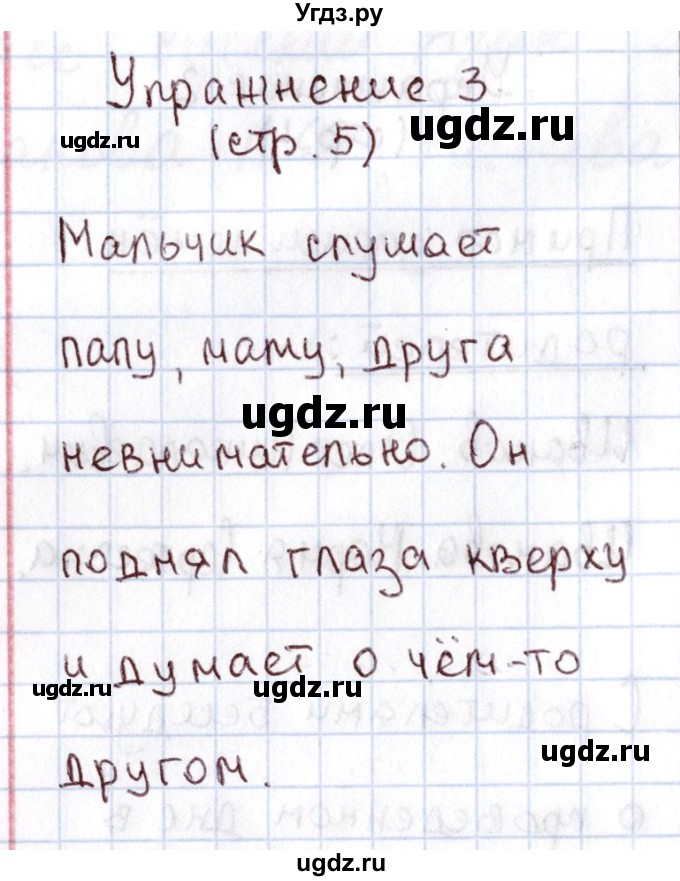 Угдз.ру
Упражнение 3
ugdz.ru
ugdz.ru
(стр. 5)
Мальчик слушает
папу, маму, друга
ugdz.ru
невнимательно. Он
поднял глаза кверху
и думает о чём-то
ugdz.ru
ugdz.ru
ugdz.ru
другом.
ugdz.ru